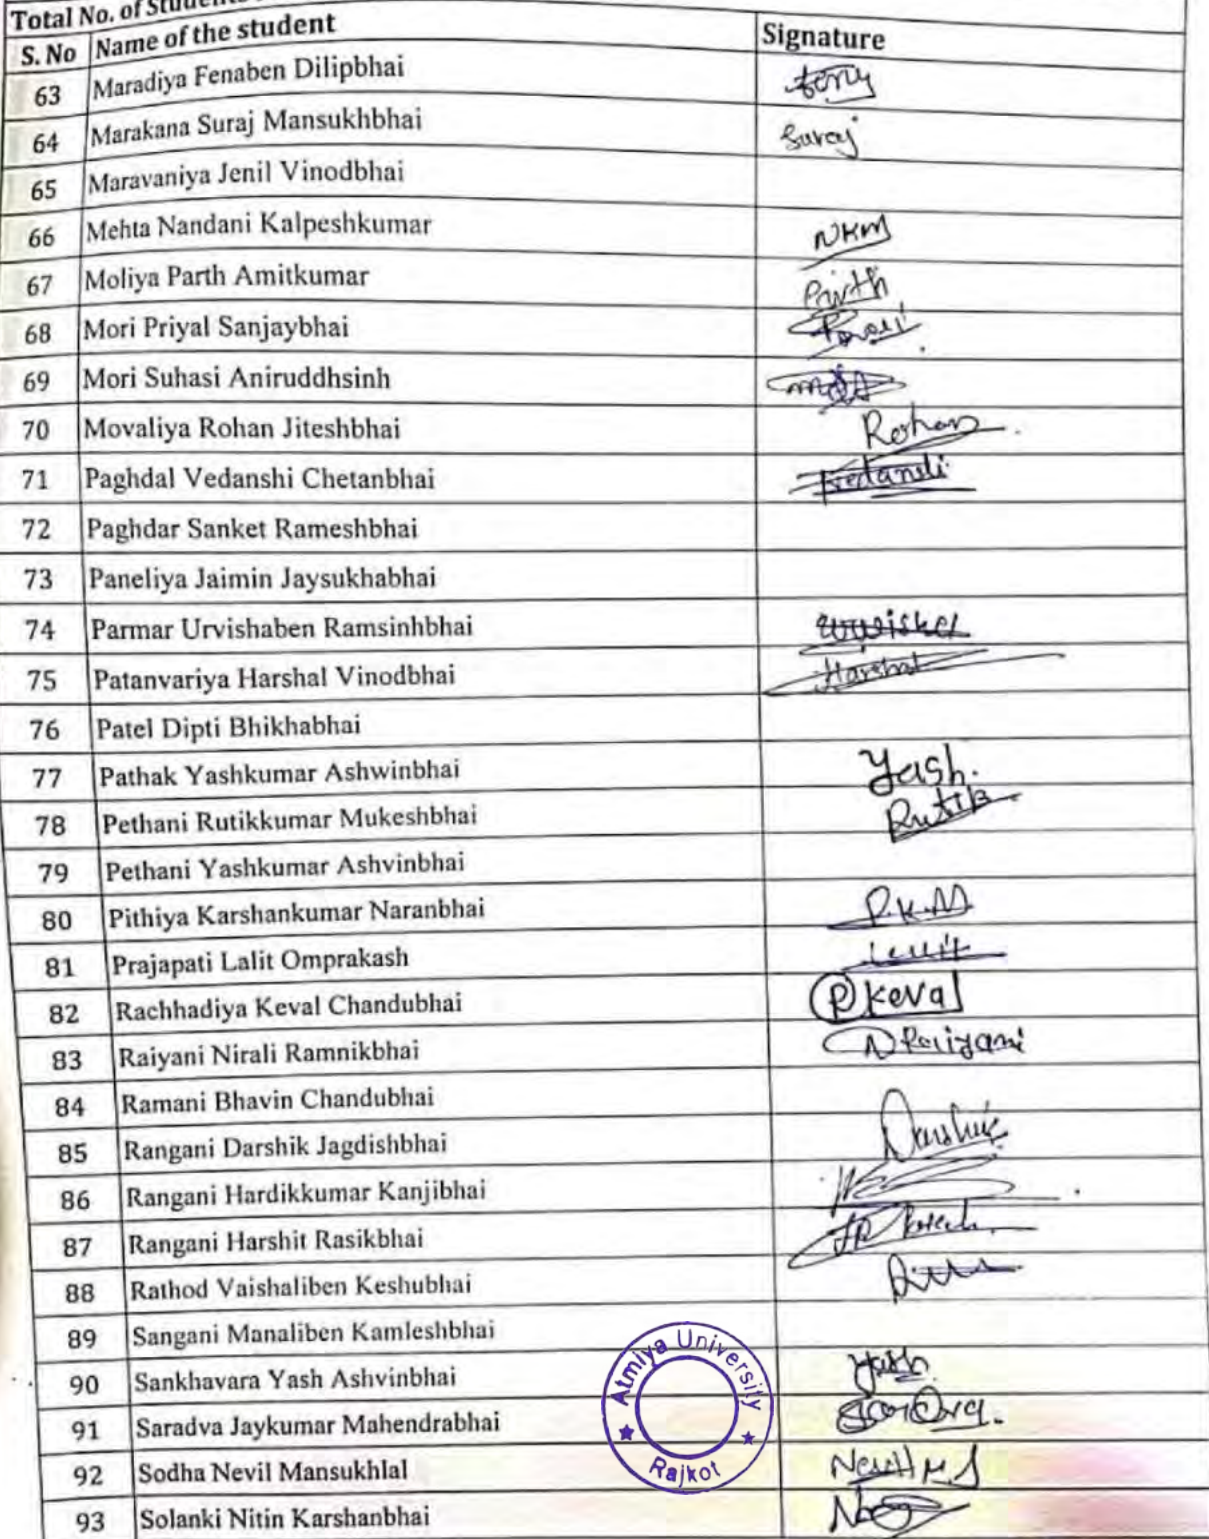 Total No. of Students
S. No Name of the student Signature
63 Maradiya Fenaben Dilipbhai
64 Marakana Suraj Mansukhbhai Suraj
65 Maravaniya Jenil Vinodbhai
66 Mehta Nandani Kalpeshkumar NKM
67 Moliya Parth Amitkumar Parth
68 Mori Priyal Sanjaybhai
69 Mori Suhasi Aniruddhsinh
70 Movaliya Rohan Jiteshbhai Rohan
71 Paghdal Vedanshi Chetanbhai Vedanshi
72 Paghdar Sanket Rameshbhai
73 Paneliya Jaimin Jaysukhabhai
74 Parmar Urvishaben Ramsinhbhai
75 Patanvariya Harshal Vinodbhai Harshal
76 Patel Dipti Bhikhabhai
77 Pathak Yashkumar Ashwinbhai Yash.
78 Pethani Rutikkumar Mukeshbhai Rutik
79 Pethani Yashkumar Ashvinbhai
80 Pithiya Karshankumar Naranbhai P.K.N
81 Prajapati Lalit Omprakash Lalit
82 Rachhadiya Keval Chandubhai P Keval
83 Raiyani Nirali Ramnikbhai N Raiyani
84 Ramani Bhavin Chandubhai
85 Rangani Darshik Jagdishbhai Darshik
86 Rangani Hardikkumar Kanjibhai
87 Rangani Harshit Rasikbhai
88 Rathod Vaishaliben Keshubhai
89 Sangani Manaliben Kamleshbhai
90 Sankhavara Yash Ashvinbhai Yash
91 Saradva Jaykumar Mahendrabhai
92 Sodha Nevil Mansukhlal Nevil M S
93 Solanki Nitin Karshanbhai
Atmiya University
Rajkot